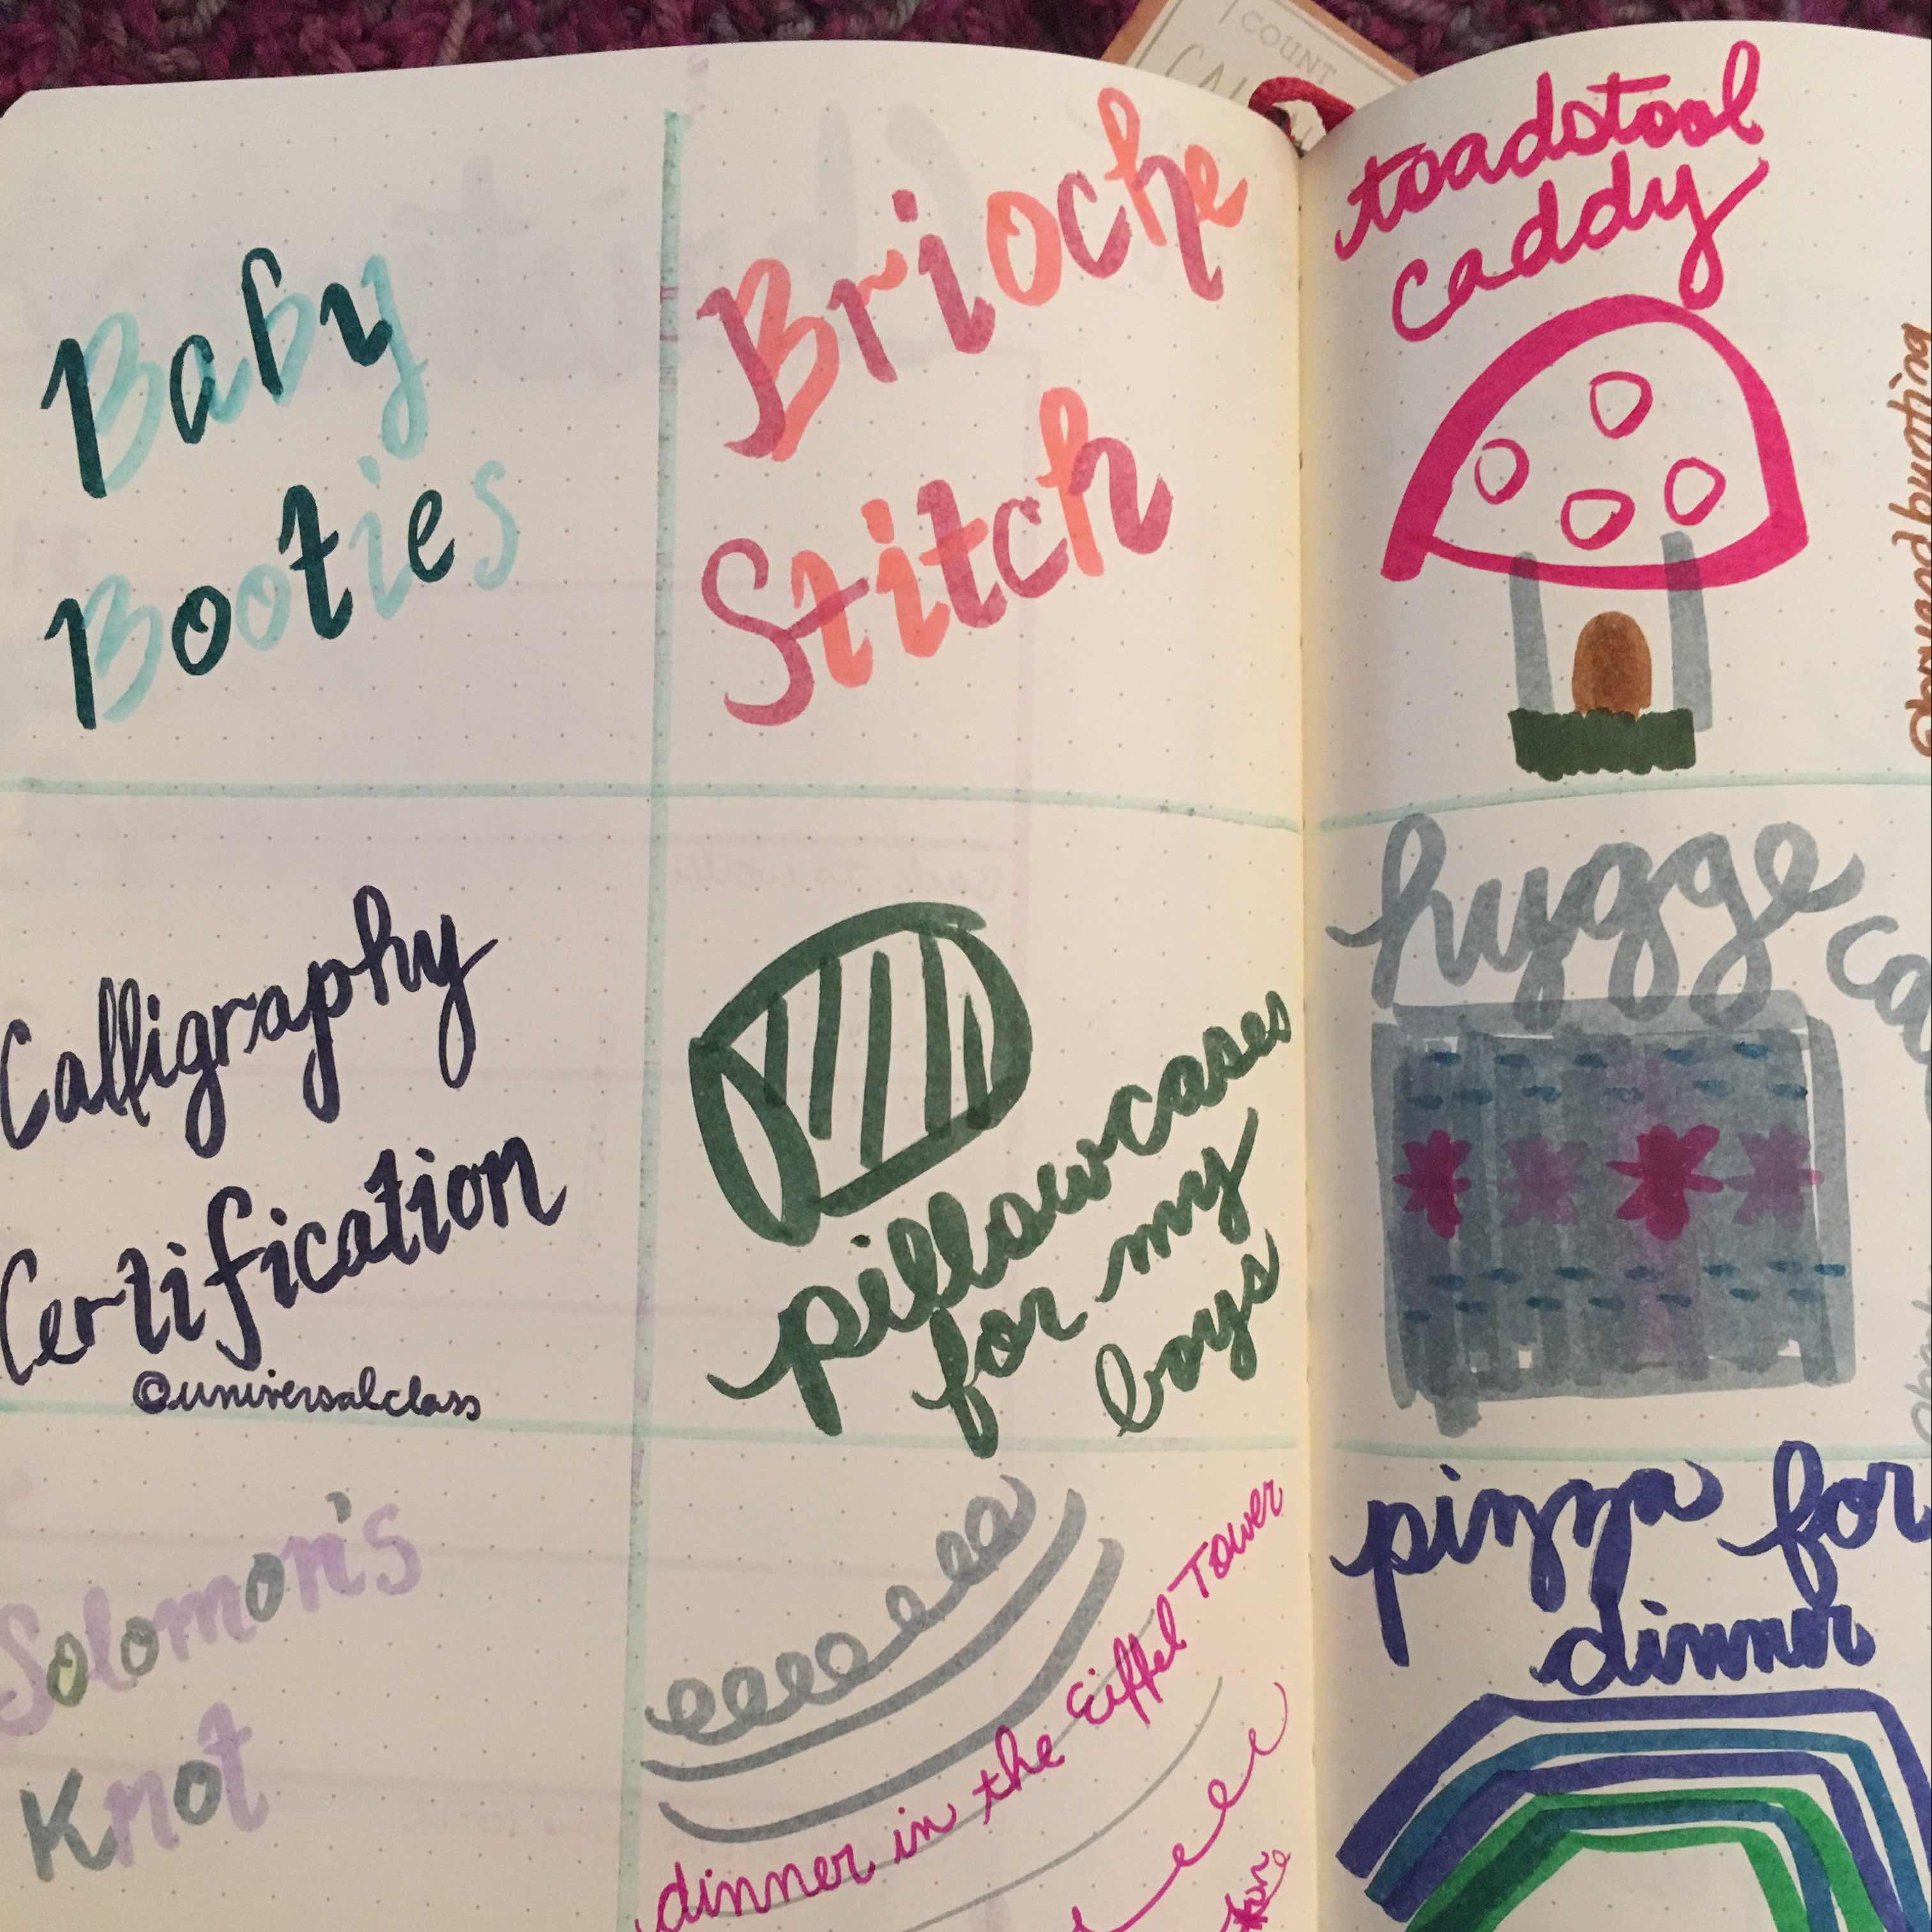 COUNT
Baby
Booties
Brioche
Stitch
toadstool
caddy
Calligraphy
Certification
@universalclass
pillowcases
for my
boys
hygge
Solomon's
Knot
dinner in the Eiffel Tower
pizza for
dinner